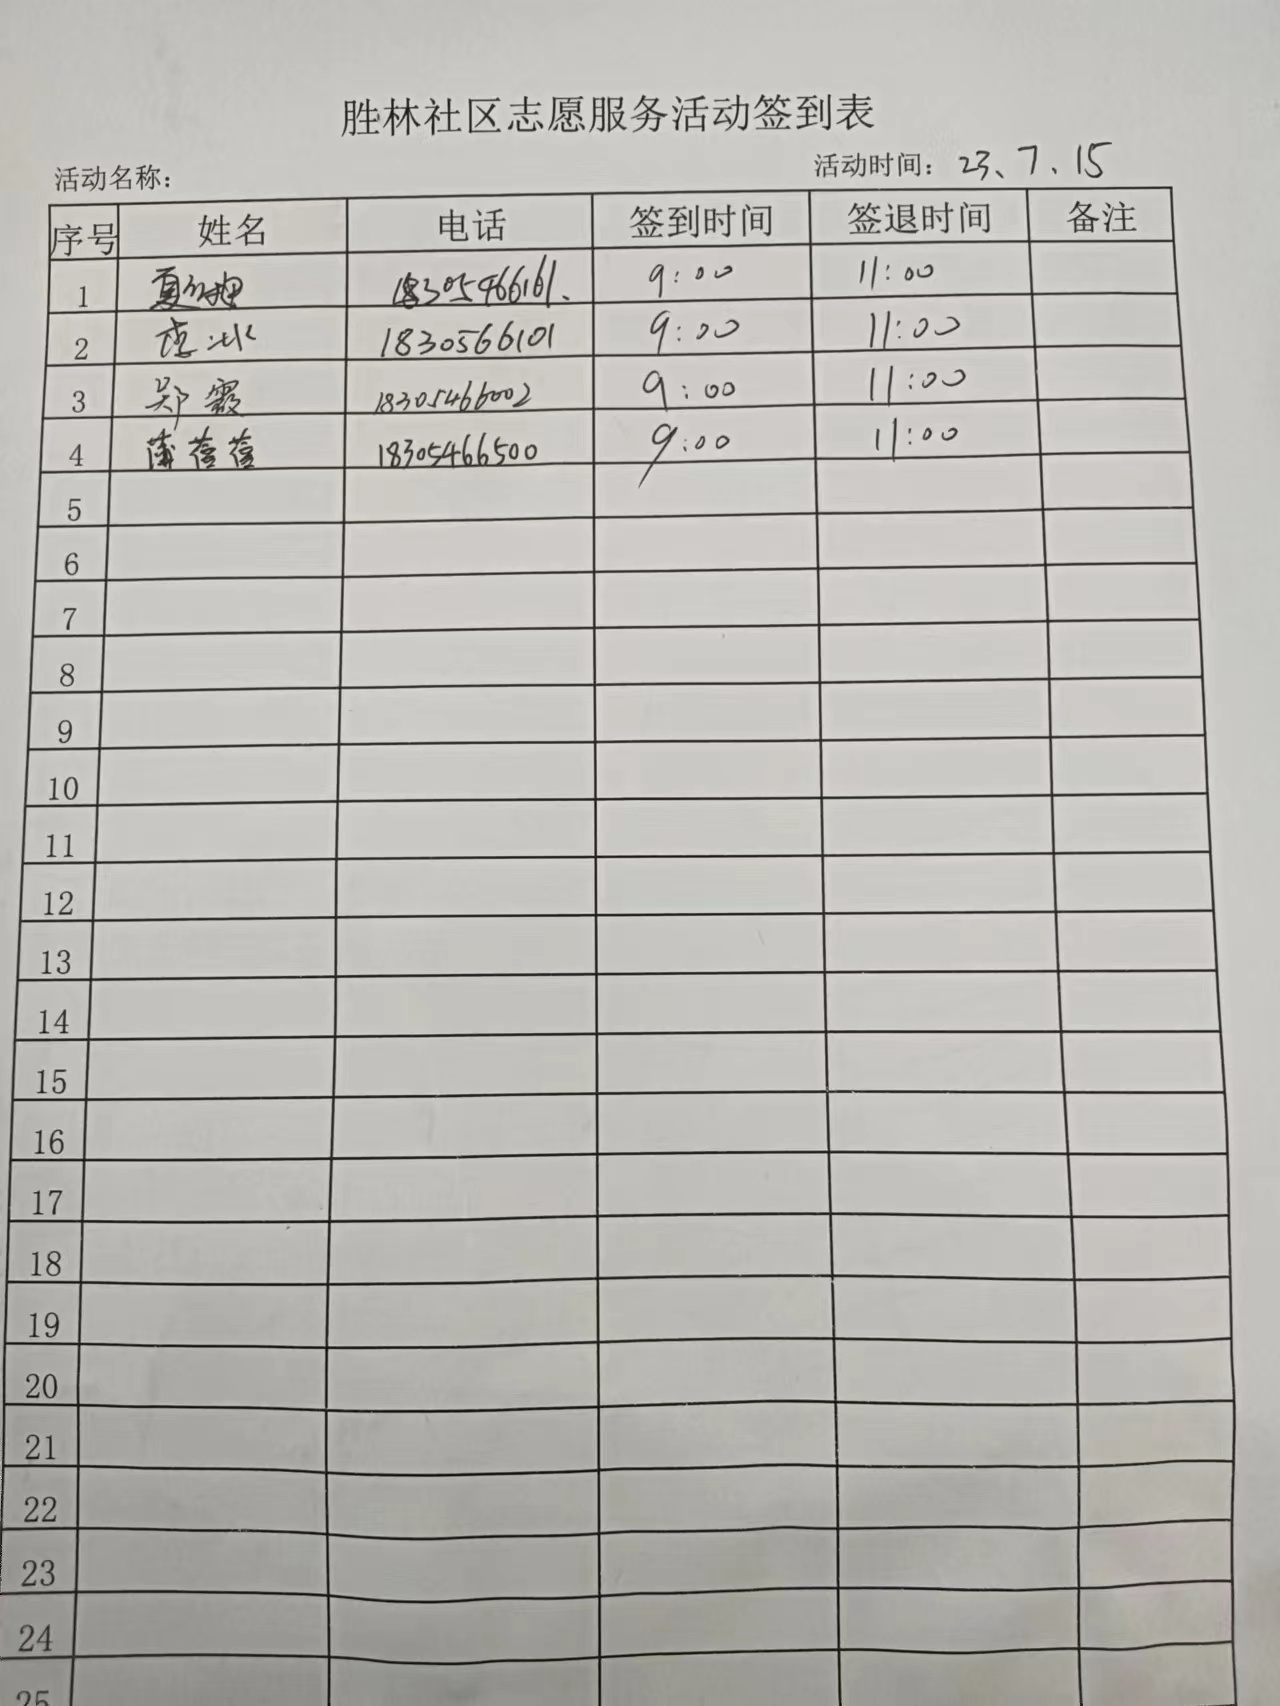 胜林社区志愿服务活动签到表
活动名称： 活动时间：23、7、15
序号 姓名 电话 签到时间 签退时间 备注
1 夏 18305466161. 9:00 11:00
2 李冰 1830566101 9:00 11:00
3 郑霞 18305466002 9:00 11:00
4 蒲蓓蓓 18305466500 9:00 11:00
5
6
7
8
9
10
11
12
13
14
15
16
17
18
19
20
21
22
23
24
25